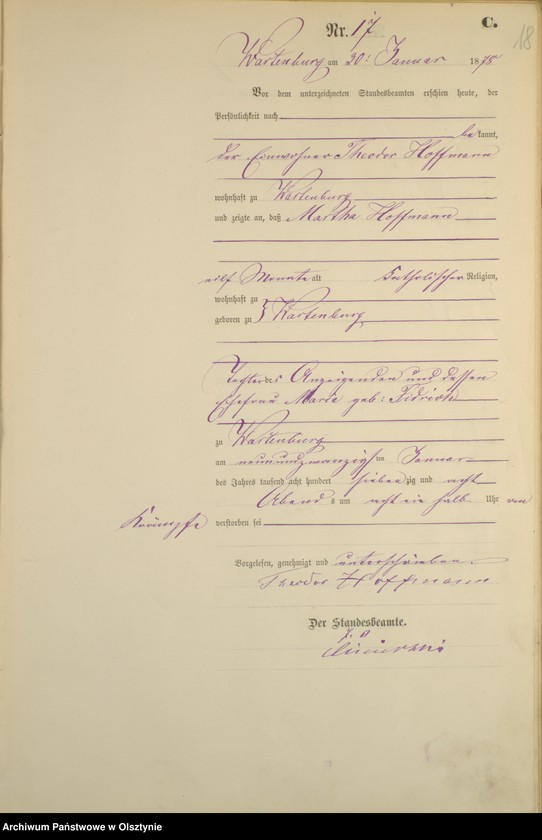 C.
18
Nr. 17
Wartenburg am 30: Januar 1878
Vor dem unterzeichneten Standesbeamten erschien heute, der
Persönlichkeit nach
bekannt,
der Einwohner Theodor Hoffmann
wohnhaft zu Wartenburg
und zeigte an, daß Martha Hoffmann
eilf Monate alt Katholischer Religion,
wohnhaft zu
geboren zu } Wartenburg
Tochter des Anzeigenden und dessen
Ehefrau Marie geb:
zu Wartenburg
am neunundzwanzigsten Januar
des Jahres tausend acht hundert siebenzig und acht
Abends um acht ein halb Uhr von
Krämpfe verstorben sei
Vorgelesen, genehmigt und unterschrieben.
Theodor Hoffmann
Der Standesbeamte.
Archiwum Państwowe w Olsztynie